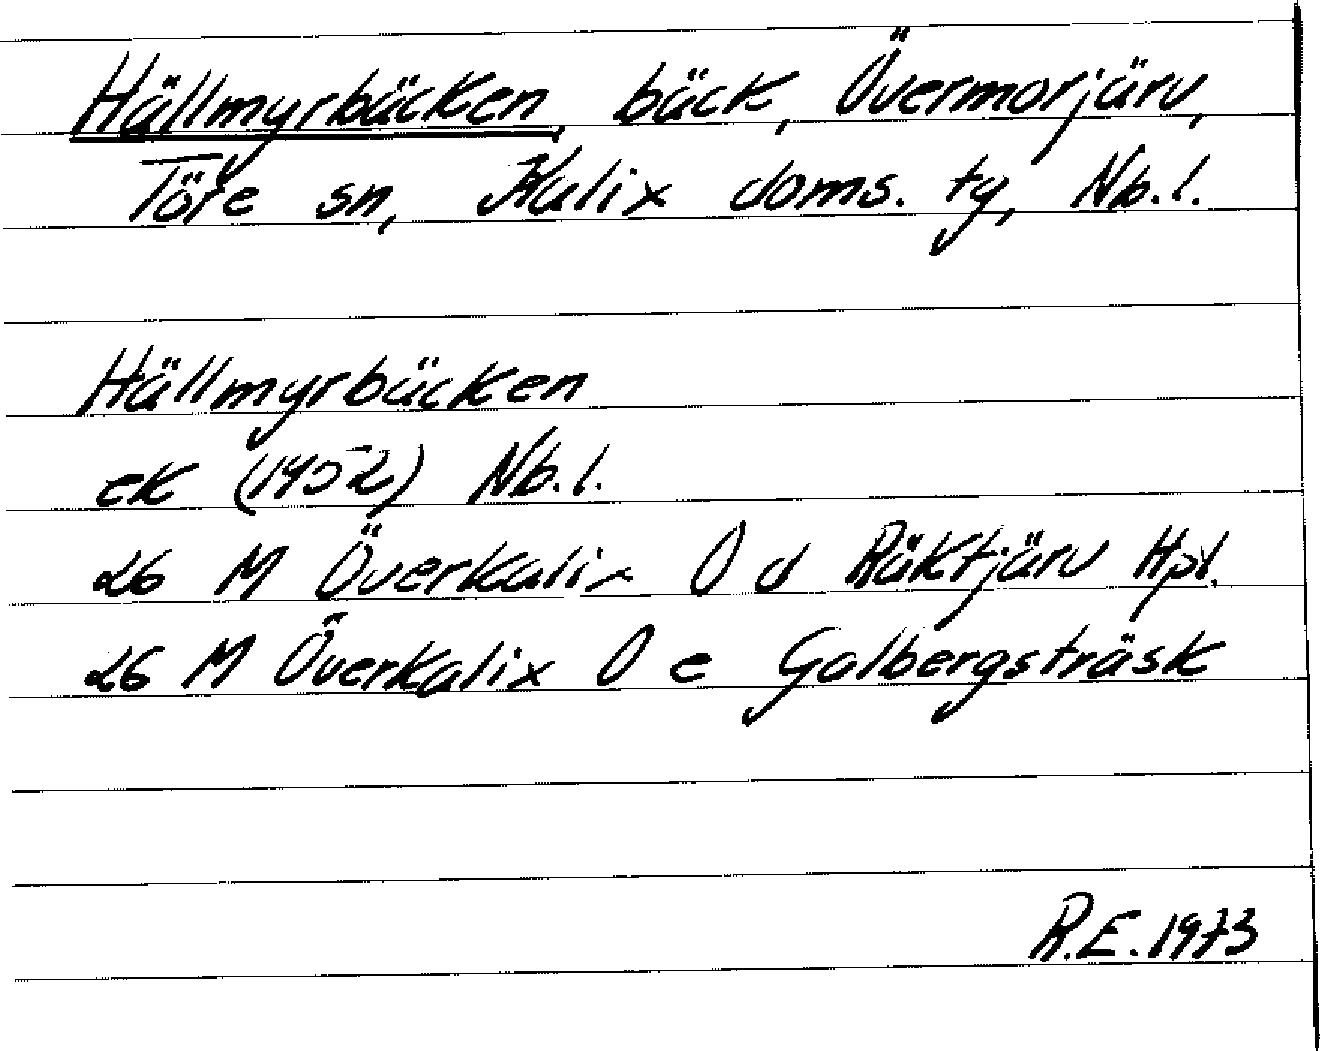 Hällmyrbäcken, bäck, Övermorjärv,
Töre sn, Kalix doms. tg, Nb.l.
Hällmyrbäcken
ek (1952) Nb.l.
26 M Överkalix O d Räktjärv Hpl.
26 M Överkalix O e Golbergsträsk
R.E. 1973